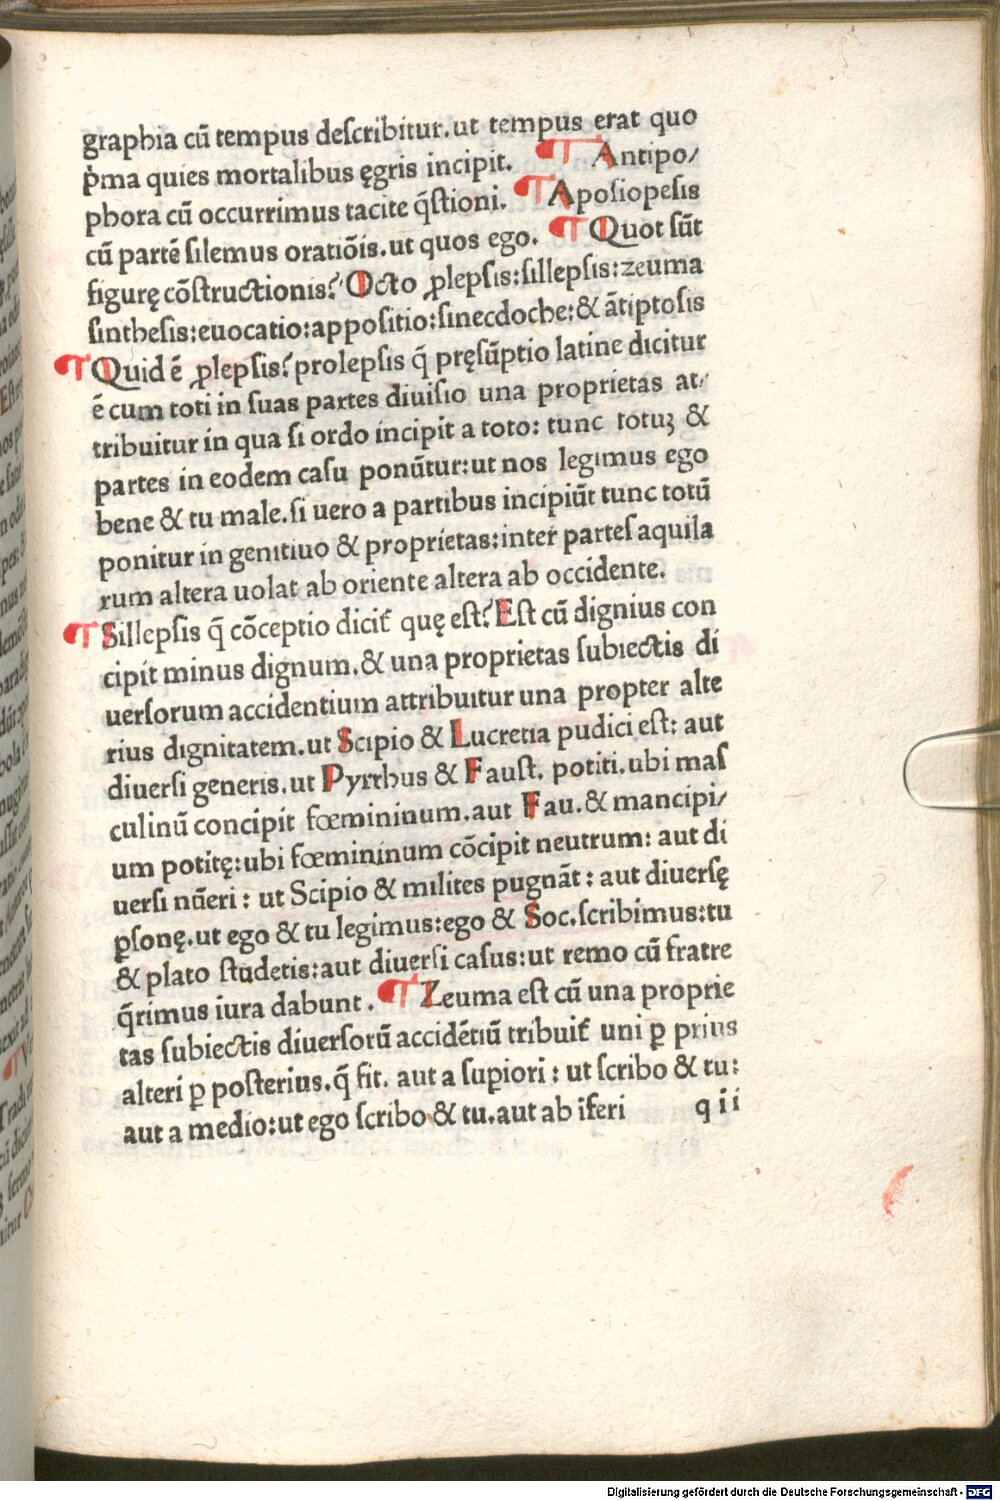 graphia cū tempus deſcribitur. ut tempus erat quo
p̄ma quies mortalibus ęgris incipit. ¶ Antipo/
phora cū occurrimus tacite q̄ſtioni. ¶ Apoſiopeſis
cū partē ſilemus oratiōis. ut quos ego. ¶ Quot ſūt
figurę cōſtructionis? Octo ꝓlepſis: ſillepſis: zeuma
ſintheſis: euocatio: appoſitio: ſinecdoche: & ātiptoſis
¶ Quid ē ꝓlepſis? prolepſis q̄ pręſūptio latine dicitur
ē cum toti in ſuas partes diuiſio una proprietas at/
tribuitur in qua ſi ordo incipit a toto: tunc totuꝫ &
partes in eodem caſu ponūtur: ut nos legimus ego
bene & tu male. ſi uero a partibus incipiūt tunc totū
ponitur in genitiuo & proprietas: inter parteſ aquila
rum altera uolat ab oriente altera ab occidente.
¶ Sillepſis q̄ cōceptio dicit̄ quę eſt? Eſt cū dignius con
cipit minus dignum. & una proprietas ſubiectis di
uerſorum accidentium attribuitur una propter alte
rius dignitatem. ut Scipio & Lucretia pudici eſt: aut
diuerſi generis. ut Pyrrhus & Fauſt. potiti. ubi maſ
culinū concipit fœmininum. aut Fau. & mancipi/
um potitę: ubi fœmininum cōcipit neutrum: aut di
uerſi nūeri: ut Scipio & milites pugnāt: aut diuerſę
ꝑſonę. ut ego & tu legimus: ego & Soc. ſcribimus: tu
& plato ſtudetis: aut diuerſi caſus: ut remo cū fratre
q̄rimus iura dabunt. ¶ Zeuma eſt cū una proprie
tas ſubiectis diuerſorū accidētiū tribuit̄ uni ꝑ prius
alteri ꝑ poſterius. q̄ fit. aut a ſuꝑiori: ut ſcribo & tu:
aut a medio: ut ego ſcribo & tu. aut ab iferi q ii
Digitalisierung gefördert durch die Deutsche Forschungsgemeinschaft - DFG